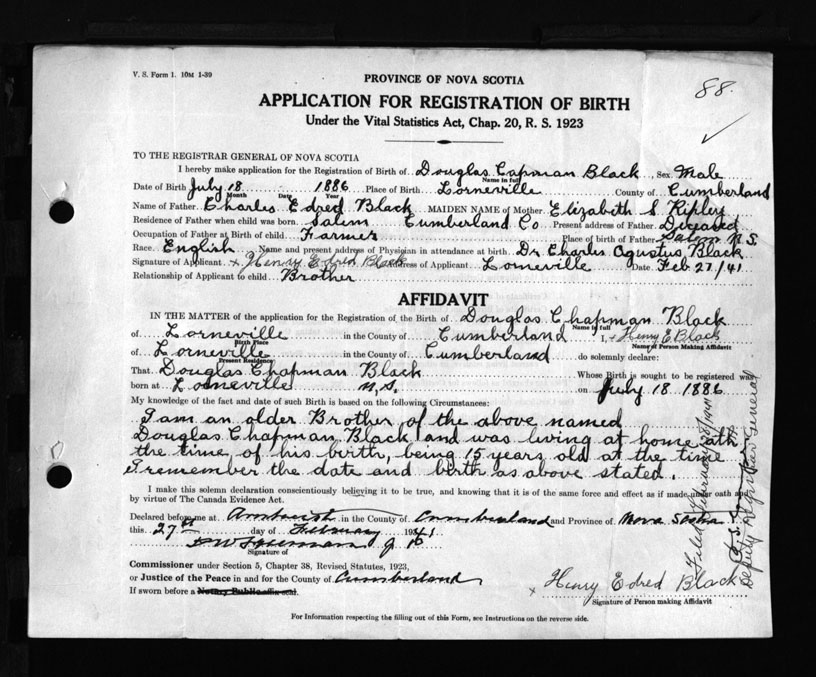 V. S. Form 1. 10M 1-39
88.
PROVINCE OF NOVA SCOTIA
APPLICATION FOR REGISTRATION OF BIRTH
Under the Vital Statistics Act, Chap. 20, R. S. 1923
TO THE REGISTRAR GENERAL OF NOVA SCOTIA
I hereby make application for the Registration of Birth of Douglas Capman Black, Sex Male
Name in full
Date of Birth July 18 1886 Place of Birth Lorneville County of Cumberland
Month Date Year
Name of Father Charles Edred Black MAIDEN NAME of Mother Elizabeth S. Ripley
Residence of Father when child was born Salem Cumberland Co Present address of Father Deceased
Occupation of Father at Birth of child Farmer Place of birth of Father Salem N.S.
Race English Name and present address of Physician in attendance at birth Dr Charles Agustus Black
Signature of Applicant x Henry Edred Black Address of Applicant Lorneville Date Feb 27/41
Relationship of Applicant to child Brother
AFFIDAVIT
IN THE MATTER of the application for the Registration of the Birth of Douglas Chapman Black
Name in full
of Lorneville in the County of Cumberland I, x Henry E Black
Birth Place Name of Person Making Affidavit
of Lorneville in the County of Cumberland do solemnly declare:
Present Residence
That Douglas Chapman Black Whose Birth is sought to be registered was
born at Lorneville N.S. on July 18 1886
My knowledge of the fact and date of such Birth is based on the following Circumstances:
I am an older Brother of the above named
Douglas Chapman Black and was living at home at
the time of his birth, being 15 years old at the time
I remember the date and birth as above stated.
I make this solemn declaration conscientiously believing it to be true, and knowing that it is of the same force and effect as if made under oath and
by virtue of The Canada Evidence Act.
Declared before me at Amherst in the County of Cumberland and Province of Nova Scotia
this 27th day of February 1941
J P
Signature of
Commissioner under Section 5, Chapter 38, Revised Statutes, 1923,
or Justice of the Peace in and for the County of Cumberland
If sworn before a Notary Public affix seal.
x Henry Edred Black
Signature of Person making Affidavit
For Information respecting the filling out of this Form, see Instructions on the reverse side.
Filed
Deputy Registrar General